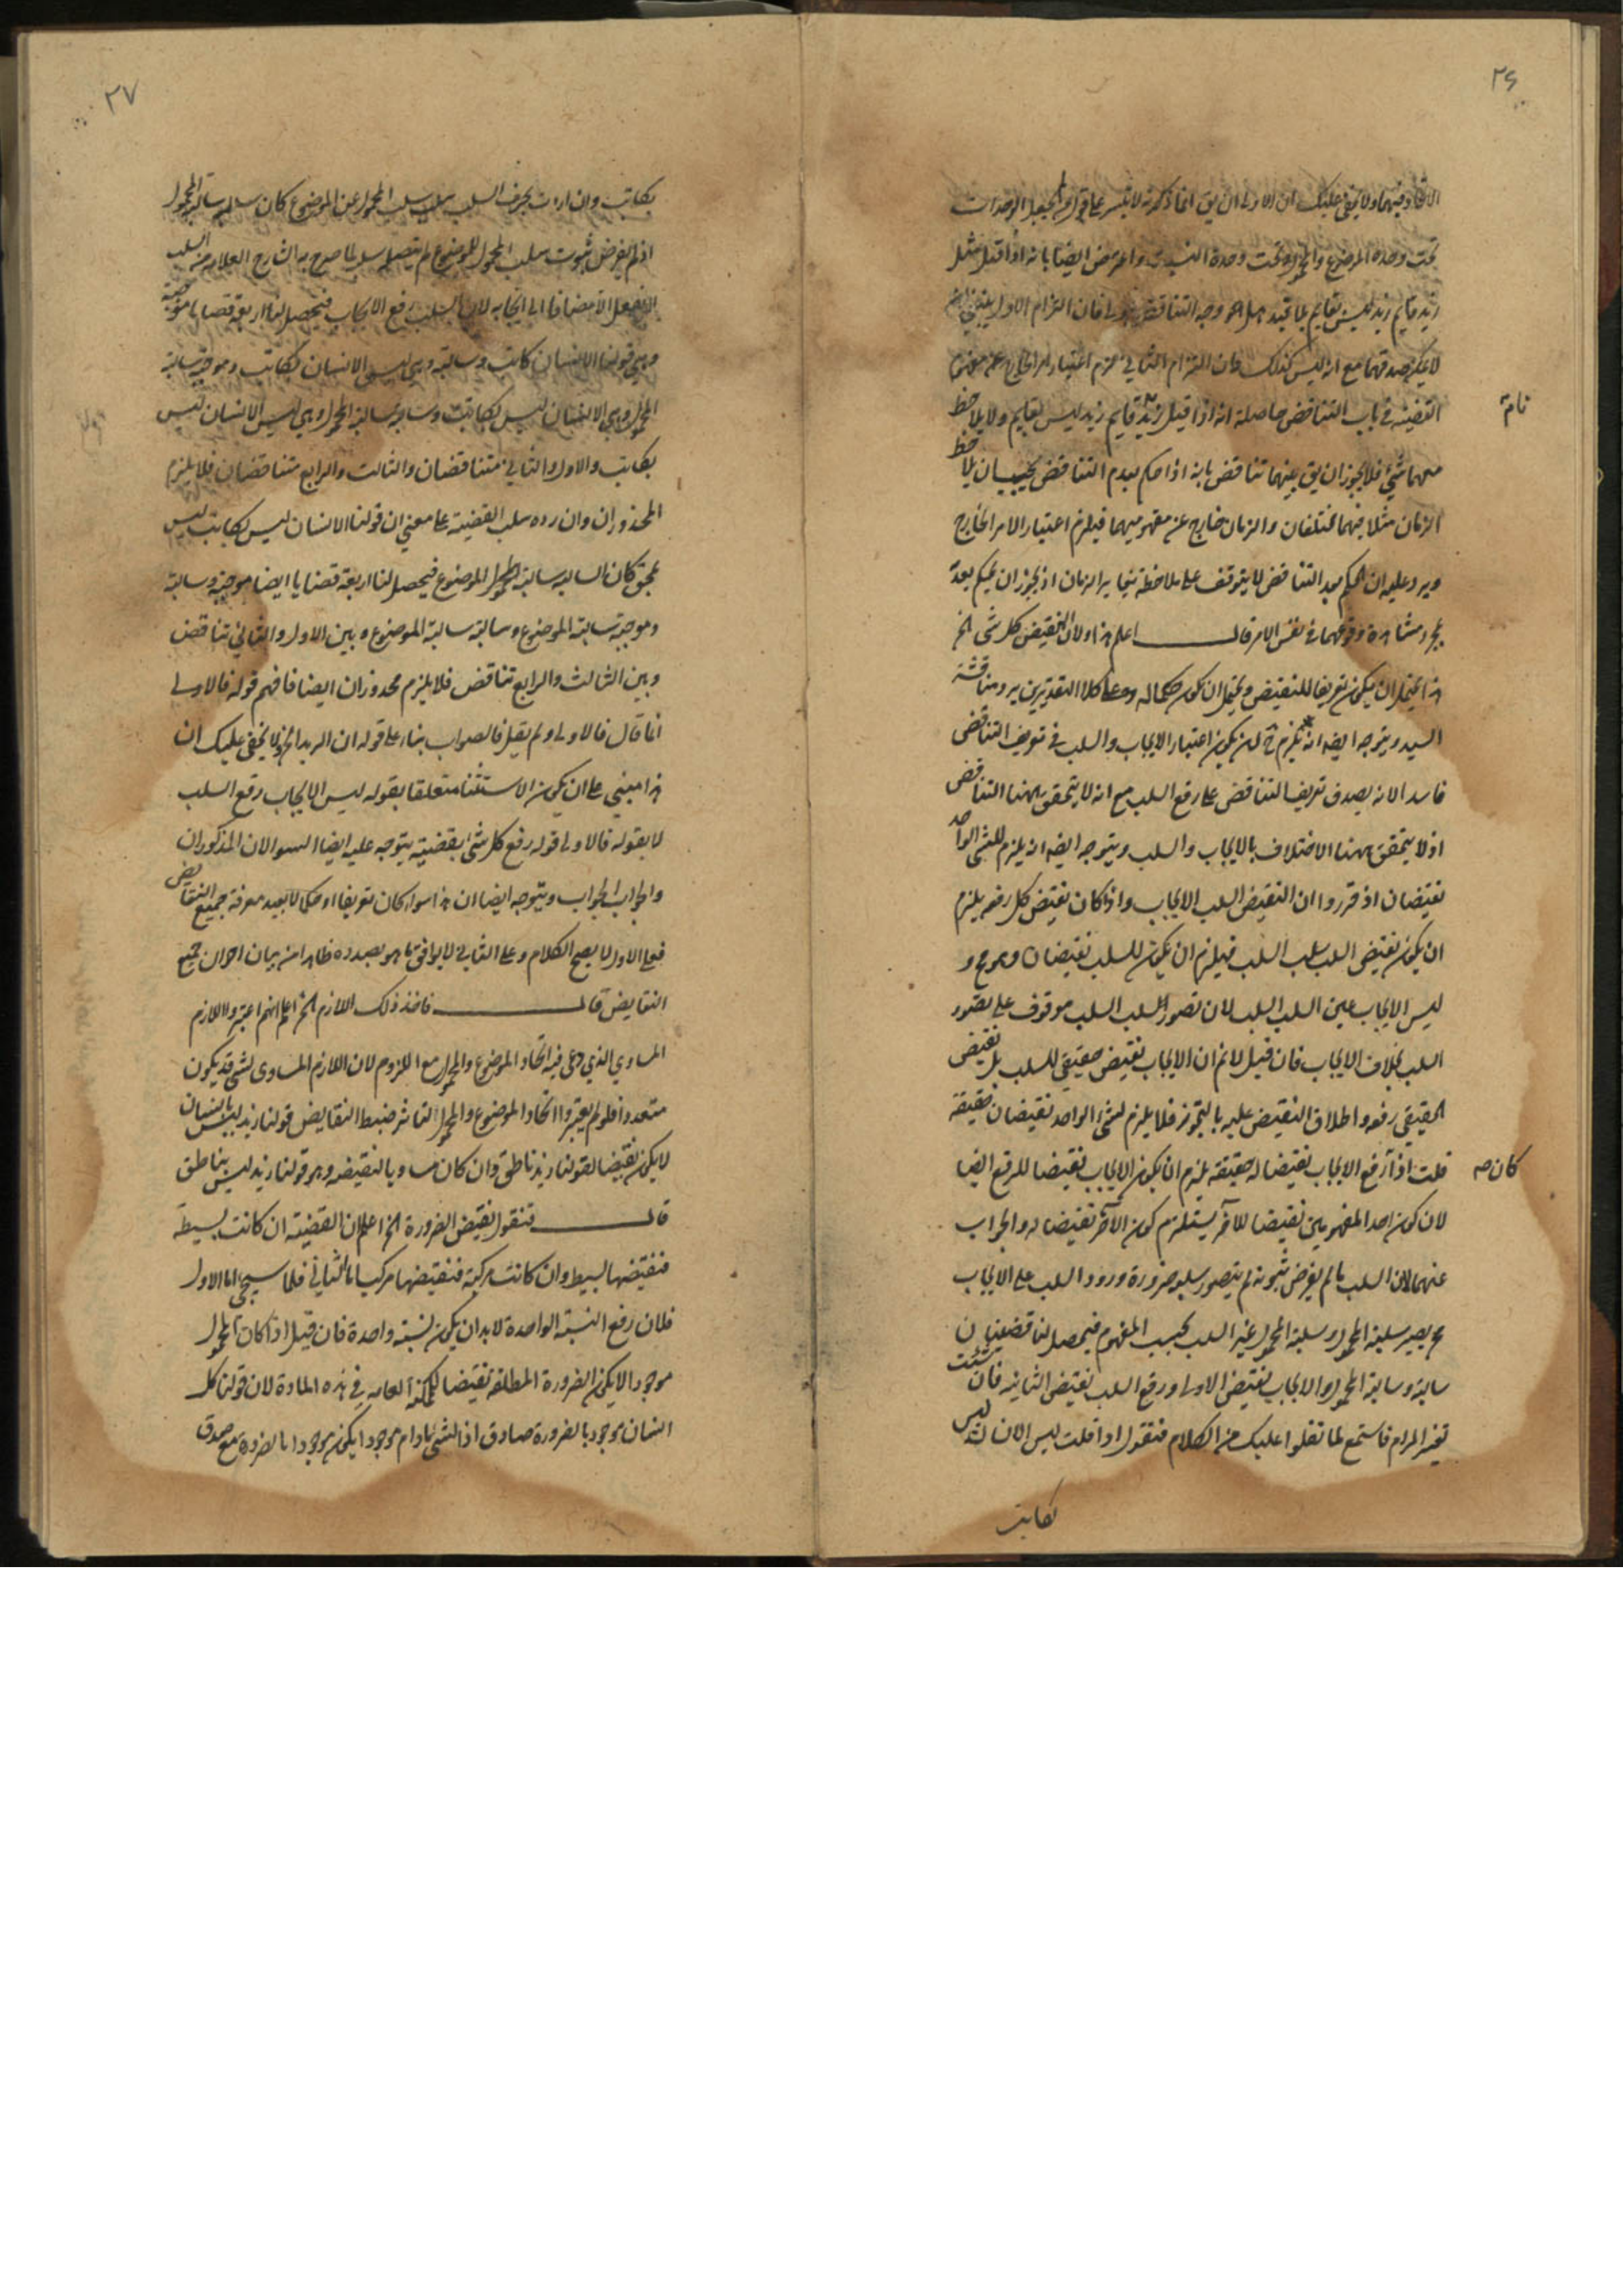 ٢٦
الاتحاد فيهما ولا يخفى عليك ان الاولى ان يق انما ذكره لا يتيسر على قول من يجعل الوحدات
تحت وحدة الموضوع والمحمول وتحت وحدة النسبة واعترض ايضا بانه اذا قيل مثلا
زيد قايم زيد ليس بقايم بلا قيد هل هو وجه التناقض اولى فان التزام الاول يقتضى ان
لا يمكن صدقهما مع انه ليس كذلك وان التزام الثاني لزم اعتبار امر الخارج عن مفهوم
القضية في باب التناقض حاصله انه اذا قيل زيد قايم زيد ليس بقايم ولا يلاحظ
معهما شئ فلا يجوز ان يق بينهما تناقض بانه اذا حكم بعدم التناقض يجب ان يلاحظ
الزمان مثلا فيهما مختلفان والزمان خارج عن مفهوميهما فيلزم اعتبار الامر الخارج
ويرد عليه ان الحكم بعد التناقض لا يتوقف على ملاحظة تغاير الزمان اذ يجوز ان يحكم بعدة
بمجرد مشاهدة وقوعهما في نفس الامر قال اعلم هذا اولا ان النقيض كل شئ الخ
هذا يحتمل ان يكون تعريفا للنقيض ويحتمل ان يكون حكما له وعلى كلا التقديرين يرد مناقشة
السيد ويتوجه ايضه انه يلزم ح ان يكون اعتبار الايجاب والسلب في تعريف التناقض
فاسدا لانه يصدق تعريف التناقض على رفع السلب مع انه لا يتحقق ههنا التناقض
اذ لا يتحقق ههنا الاختلاف بالايجاب والسلب ويتوجه ايضه انه يلزم للشئ الواحد
نقيضان اذ قرروا ان النقيض السلب الايجاب واذا كان نقيض كل رفعه يلزم
ان يكون نقيض السلب سلب السلب فيلزم ان يكون للسلب نقيضان وهو مح و
ليس الايجاب عين السلب السلب لان تصور السلب السلب موقوف على تصور
السلب بخلاف الايجاب فان قيل لانم ان الايجاب نقيض حقيقي للسلب بل نقيض
الحقيقي رفعه واطلاق النقيض عليه بالتجوز فلا يلزم لشئ الواحد نقيضان حقيقة
قلت اذا رفع الايجاب نقيضا له حقيقة يلزم ان يكون الايجاب نقيضا للرفع ايضا
كان صه
لان كون احد المفهومين نقيضا للاخر يستلزم كون الآخر نقيضا له والجواب
عنهما لان السلب ما لم يفرض ثبوته لم يتصور سلبه ضرورة ورود السلب على الايجاب
ح يصير سلبية المحمول وسلبية المحمول غير السلب بحسب المفهوم فيحصل لنا قضيتان
سالبة وسالبة المحمول والايجاب نقيض الاولى ورفع السلب نقيض الثانية فان شئت
تفسير المرام فاستمع لما نتلوا عليك من الكلام فنقول اذا قلت ليس الانسان ليس
بكاتب
٢٧
بكاتب وان اردت بحرف السلب سلب سلب المحمول عن الموضوع كان سلب سالبة المحمول
اذ لم يفرض ثبوت سلب المحمول للموضوع لم يتصور سلبه لما صرح به الشارح العلامه من السلب
لا يعقل الا مضافا الى ايجابه لان السلب رفع الايجاب فيحصل لنا اربعة قضايا موجبة
وهي قولنا الانسان كاتب وسالبة وهي ليس الانسان بكاتب وموجبة سالبة
المحمول وهي الانسان ليس بكاتب وسالبة سالبة المحمول وهي ليس الانسان ليس
بكاتب والاول والثاني متناقضان والثالث والرابع متناقضان فلا يلزم
المحذوران وان رده سلب القضية على معنى ان قولنا الانسان ليس بكاتب ليس
بحق كان السالبه سالبة الموضوع فيحصل لنا اربعة قضايا ايضا موجبة وسالبة
وموجبة سالبة الموضوع وسالبة سالبة الموضوع وبين الاول والثاني تناقض
وبين الثالث والرابع تناقض فلا يلزم محذوران ايضا فافهم قوله فالاولى
انما قال فالاولى ولم يقل فالصواب بناء على قوله ان المريد الخ ولا يخفى عليك ان
هذا مبني على ان يكون الاستثناء متعلقا بقوله ليس الايجاب رفع السلب
لا بقوله فالاولى قوله رفع كل شئ نقيضه يتوجه عليه ايضا السوالان المذكوران
والجواب الجواب ويتوجه ايضا ان هذا سواء كان تعريفا او حكما لا يفيد معرفة جميع النقايض
فعلى الاول لا يصح الكلام وعلى الثاني لا يوافق ما هو بصدده ظاهرا من بيان احوال جميع
النقايض قال فاخذ ذلك اللازم الخ اعلم انهم اعتبروا اللازم
المساوي الذي روعى فيه اتحاد الموضوع والمحمول مع الملزوم لان اللازم المساوى لشئ قد يكون
متعددا فلو لم يعتبروا اتحاد الموضوع والمحمول لتناثر ضبط النقايض قولنا زيد ليس بانسان
لا يكون نقيضا لقولنا زيد ناطق وان كان مساويا لنقيضه وهو قولنا زيد ليس بناطق
قال فنقول نقيض الضرورة الخ اعلم ان القضية ان كانت بسيطة
فنقيضها بسيط وان كانت مركبة فنقيضها مركب اما الثاني فلما سيجئ اما الاول
فلان رفع النسبة الواحدة لا بد ان يكون نسبة واحدة فان قيل اذا كان المحمول
موجودا لا يكون الضرورة المطلقة نقيضا للممكنة العامه في هذه المادة لان قولنا كل
انسان موجود بالضرورة صادق اذ الشئ ما دام موجودا يكون موجودا بالضرورة مع صدق